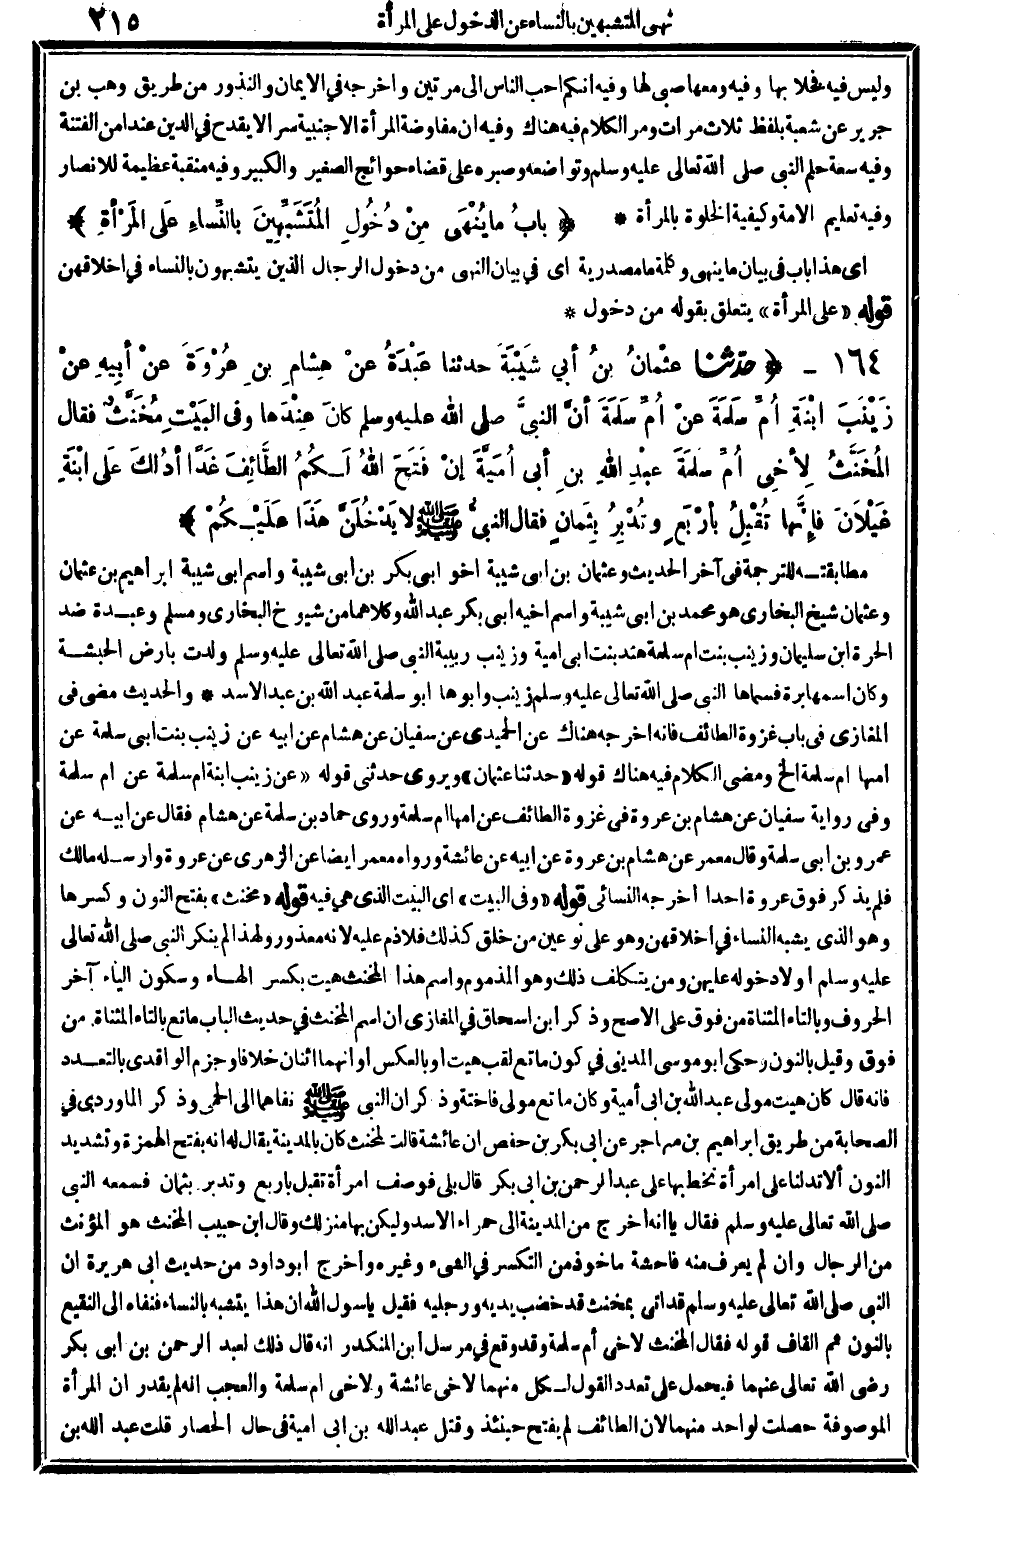 نهى المتشبهين بالنساء عن الدخول على المرأة ٢١٥
وليس فيه فخلا بها وفيه ومعها صبى لها وفيه انكم احب الناس الى مرتين واخرجه في الايمان والنذور من طريق وهب بن
جرير عن شعبة بلفظ ثلاث مرات ومر الكلام فيه هناك وفيه ان مفاوضة المرأة الاجنبية سرا لا يقدح في الدين عند امن الفتنة
وفيه سعة حلم النبى صلى الله تعالى عليه وسلم وتواضعه وصبره على قضاء حوائج الصغير والكبير وفيه منقبة عظيمة للانصار
وفيه تعليم الامة وكيفية الخلوة بالمرأة * ﴿ بابُ ما يُنْهَى مِنْ دُخُولِ المُتَشَبِّهِينَ بالنِّساءِ عَلَى المَرْأةِ ﴾
اى هذا باب فى بيان ما ينهى وكلمة ما مصدرية اى فى بيان النهى من دخول الرجال الذين يتشبهون بالنساء في اخلاقهن
قوله «على المرأة» يتعلق بقوله من دخول *
١٦٤ - ﴿ حدثنا عثْمانُ بنُ أبي شَيْبَةَ حدثنا عَبْدَةُ عنْ هِشامِ بنِ عُرْوَةَ عنْ أبِيهِ عنْ
زَيْنَبَ ابْنَةِ أُمِّ سَلَمَةَ عنْ أُمِّ سَلَمَةَ أنَّ النبىَّ صلى الله عليه وسلم كانَ عِنْدَها وفى البَيْتِ مُخَنَّثٌ فقال
المُخَنَّثُ لِأخِى أُمِّ سَلمَةَ عبْدِ اللهِ بنِ أبى أُمَيَّةَ إنْ فَتَحَ اللهُ لَكُمُ الطَّائِفَ غَدًا أدُلُّكَ عَلى ابْنَةِ
غَيْلَانَ فإنَّها تُقْبِلُ بأرْبَعٍ وتُدْبِرُ بِثَمانٍ فقال النبىُّ ﷺ لا يَدْخُلَنَّ هَذَا عَلَيْكُمْ ﴾
مطابقته للترجمة فى آخر الحديث وعثمان بن ابى شيبة اخو ابى بكر بن أبى شيبة واسم ابى شيبة ابراهيم بن عثمان
وعثمان شيخ البخارى هو محمد بن ابى شيبة واسم اخيه ابى بكر عبد الله وكلاهما من شيوخ البخارى ومسلم وعبدة ضد
الحرة ابن سليمان وزينب بنت ام سلمة هند بنت ابى امية وزينب ربيبة النبى صلى الله تعالى عليه وسلم ولدت بارض الحبشة
وكان اسمها برة فسماها النبى صلى الله تعالى عليه وسلم زينب وابوها ابو سلمة عبد الله بن عبد الاسد * والحديث مضى فى
المغازى فى باب غزوة الطائف فانه اخرجه هناك عن الحميدى عن سفيان عن هشام عن ابيه عن زينب بنت ابى سلمة عن
امها ام سلمة الخ ومضى الكلام فيه هناك قوله «حدثنا عثمان» ويروى حدثنى قوله «عن زينب ابنة ام سلمة عن ام سلمة
وفى رواية سفيان عن هشام بن عروة فى غزوة الطائف عن امها ام سلمة وروى حماد بن سلمة عن هشام فقال عن ابيه عن
عمرو بن ابى سلمة وقال معمر عن هشام بن عروة عن ابيه عن عائشة ورواه معمر ايضا عن الزهرى عن عروة وارسله مالك
فلم يذكر فوق عروة احدا أخرجه النسائى قوله «وفى البيت» اى البيت الذى هى فيه قوله «مخنث» بفتح النون وكسرها
وهو الذى يشبه النساء في اخلاقهن وهو على نوعين من خلق كذلك فلا ذم عليه لانه معذور ولهذا لم ينكر النبى صلى الله تعالى
عليه وسلم اولا دخوله عليهن ومن يتكلف ذلك وهو المذموم واسم هذا المخنث هيت بكسر الهاء وسكون الياء آخر
الحروف وبالتاء المثناة من فوق على الاصح وذكر ابن اسحاق في المغازى ان اسم المخنث في حديث الباب ماتع بالتاء المثناة من
فوق وقيل بالنون وحكى ابو موسى المدينى في كون ماتع لقب هيت او بالعكس او انهما اثنان خلافا وجزم الواقدى بالتعدد
فانه قال كان هيت مولى عبد الله بن ابى أمية وكان ماتع مولى فاختة وذكر ان النبى ﷺ نفاهما الى الحمى وذكر الماوردى في
الصحابة من طريق ابراهيم بن مهاجر عن ابى بكر بن حفص ان عائشة قالت لمخنث كان بالمدينة يقال له انه بفتح الهمزة وتشديد
النون ألا تدلنا على امرأة نخطبها على عبد الرحمن بن ابى بكر قال بلى فوصف امرأة تقبل باربع وتدبر بثمان فسمعه النبى
صلى الله تعالى عليه وسلم فقال ياانه اخرج من المدينة الى حمراء الاسد وليكن بها منزلك وقال ابن حبيب المخنث هو المؤنث
من الرجال وان لم يعرف منه فاحشة ماخوذ من التكسر في الشىء وغيره واخرج ابو داود من حديث ابى هريرة ان
النبى صلى الله تعالى عليه وسلم قد اتى بمخنث قد خضب يديه ورجليه فقيل يا رسول الله ان هذا يتشبه بالنساء فنفاه الى النقيع
بالنون ثم القاف قوله فقال المخنث لاخى أم سلمة وقد وقع في مرسل ابن المنكدر انه قال ذلك لعبد الرحمن بن ابى بكر
رضى الله تعالى عنهما فيحمل على تعدد القول لكل منهما لاخى عائشة ولاخى ام سلمة والعجب انه لم يقدر ان المرأة
الموصوفة حصلت لواحد منهما لان الطائف لم يفتح حينئذ وقتل عبد الله بن ابى امية فى حال الحصار قلت عبد الله بن